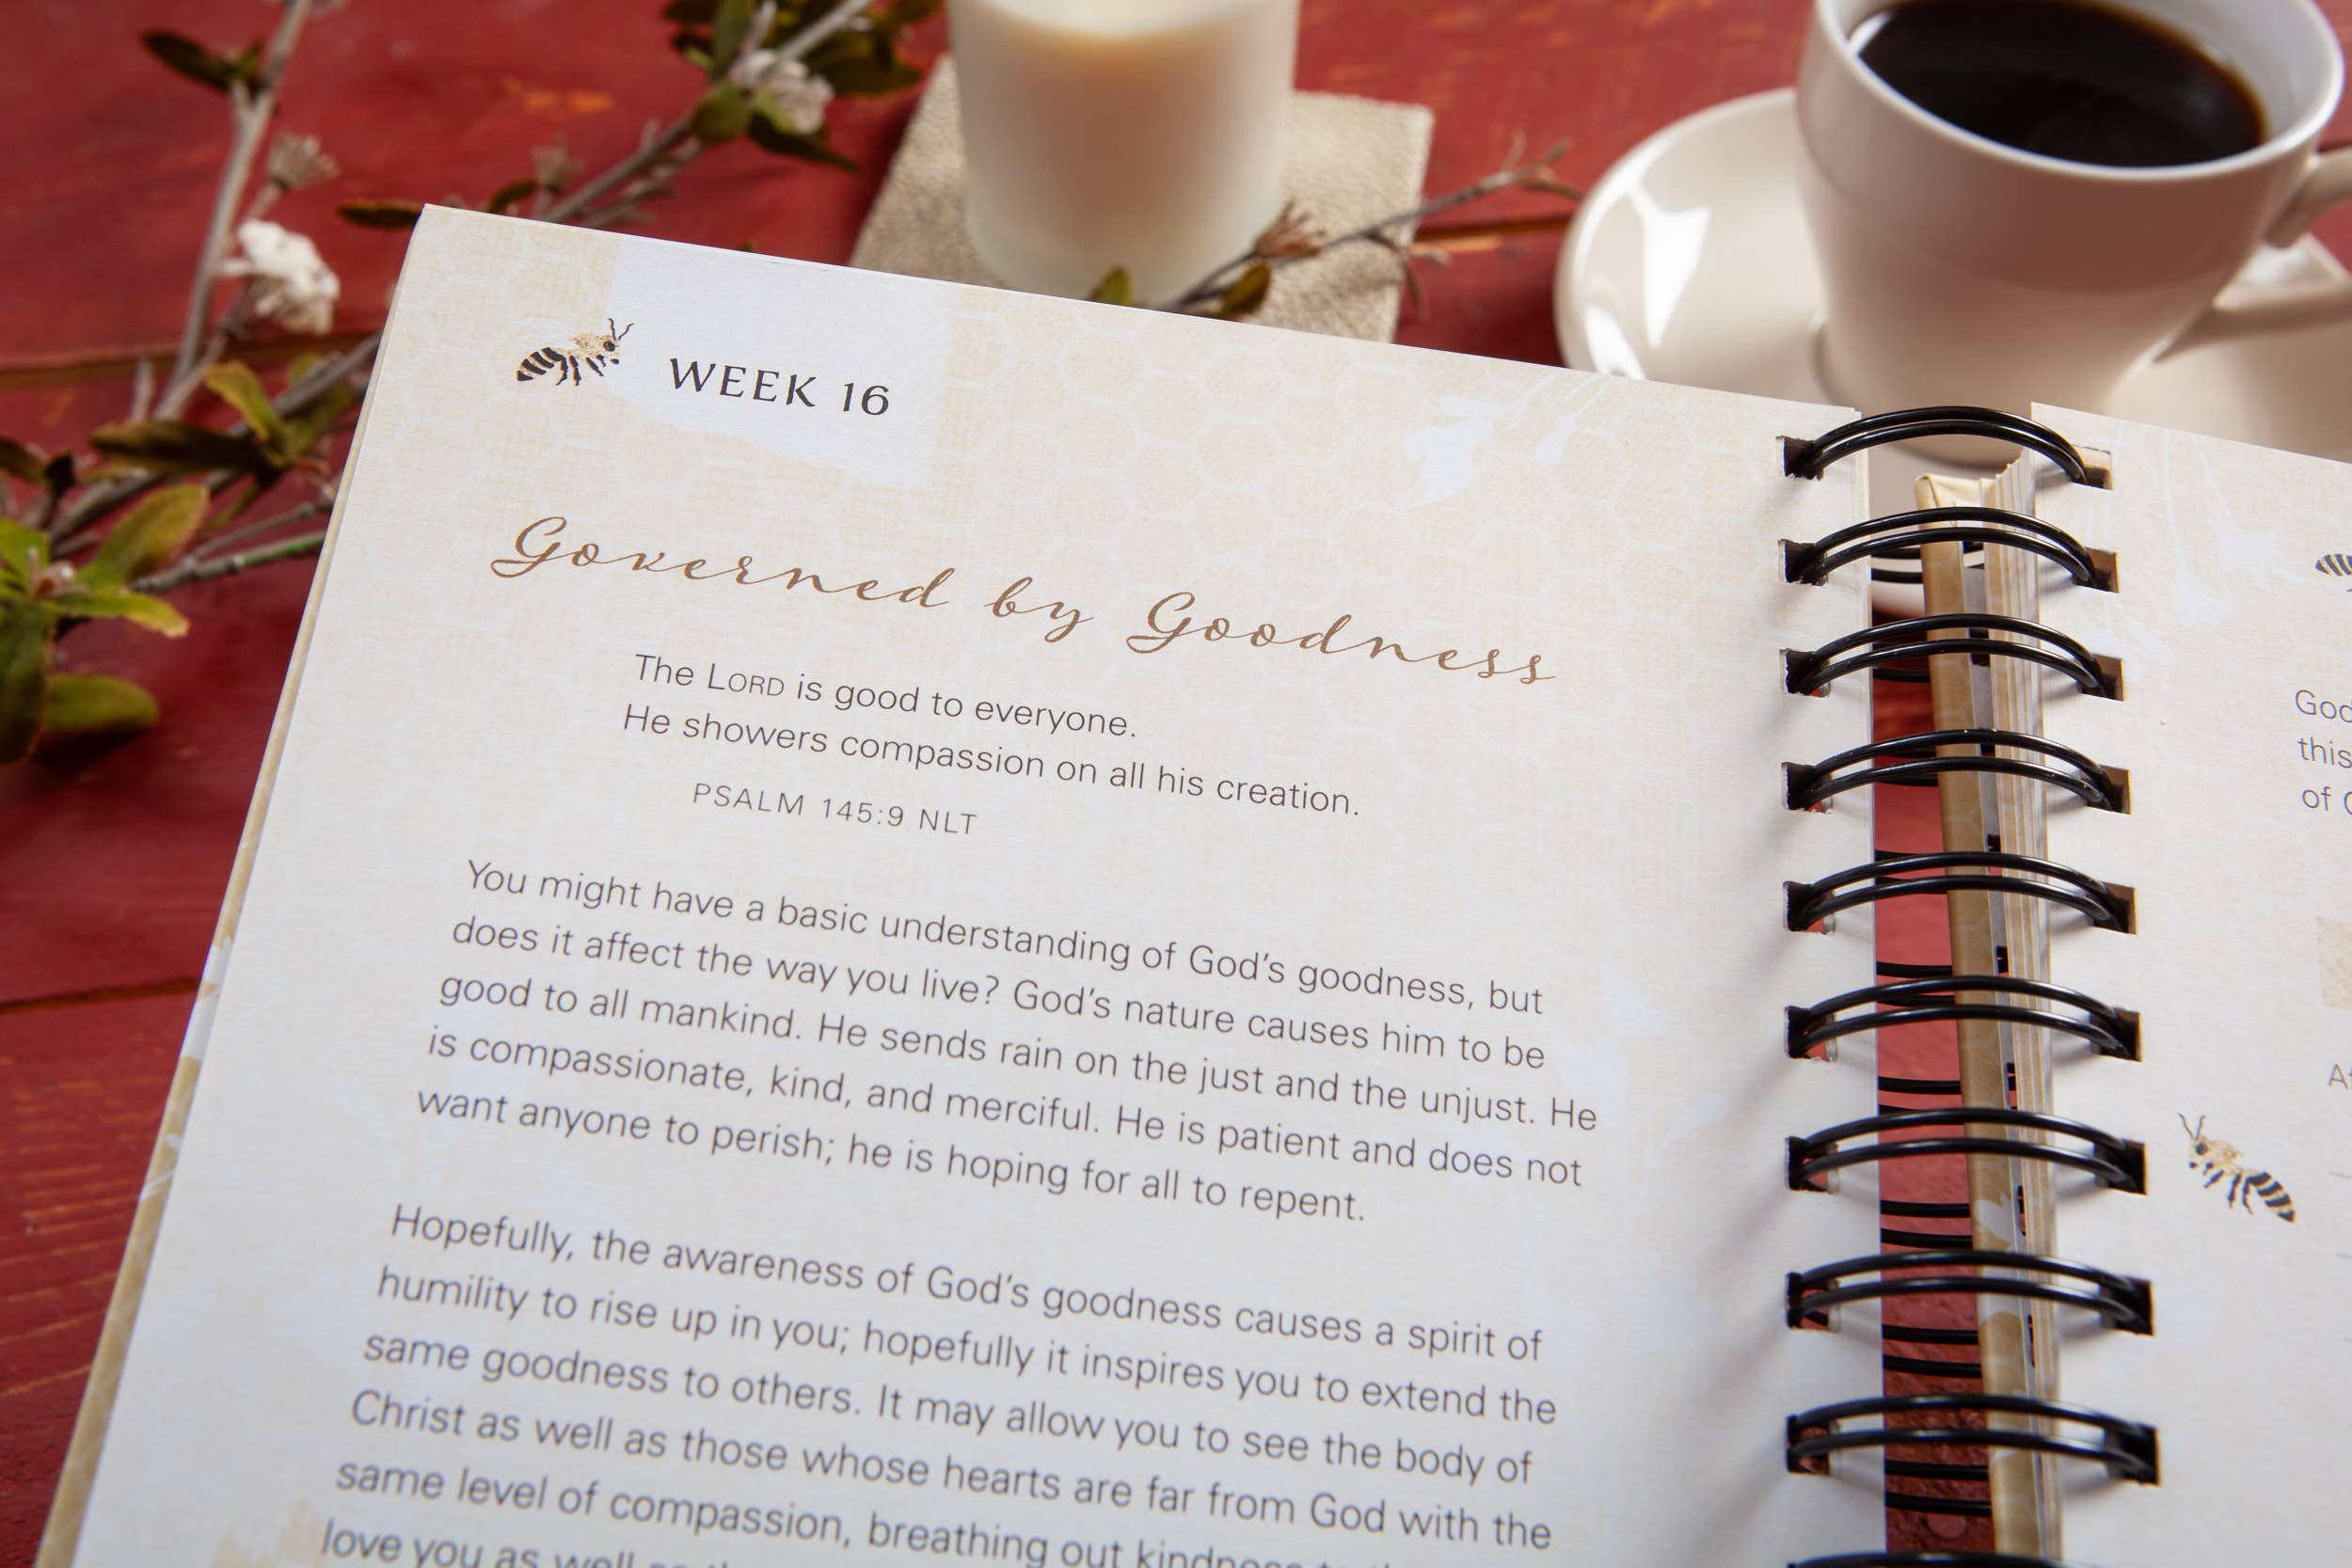 WEEK 16
Governed by Goodness
The LORD is good to everyone.
He showers compassion on all his creation.
PSALM 145:9 NLT
You might have a basic understanding of God's goodness, but
does it affect the way you live? God's nature causes him to be
good to all mankind. He sends rain on the just and the unjust. He
is compassionate, kind, and merciful. He is patient and does not
want anyone to perish; he is hoping for all to repent.
Hopefully, the awareness of God's goodness causes a spirit of
humility to rise up in you; hopefully it inspires you to extend the
same goodness to others. It may allow you to see the body of
Christ as well as those whose hearts are far from God with the
same level of compassion, breathing out kindness
love you as well as
God
this
of